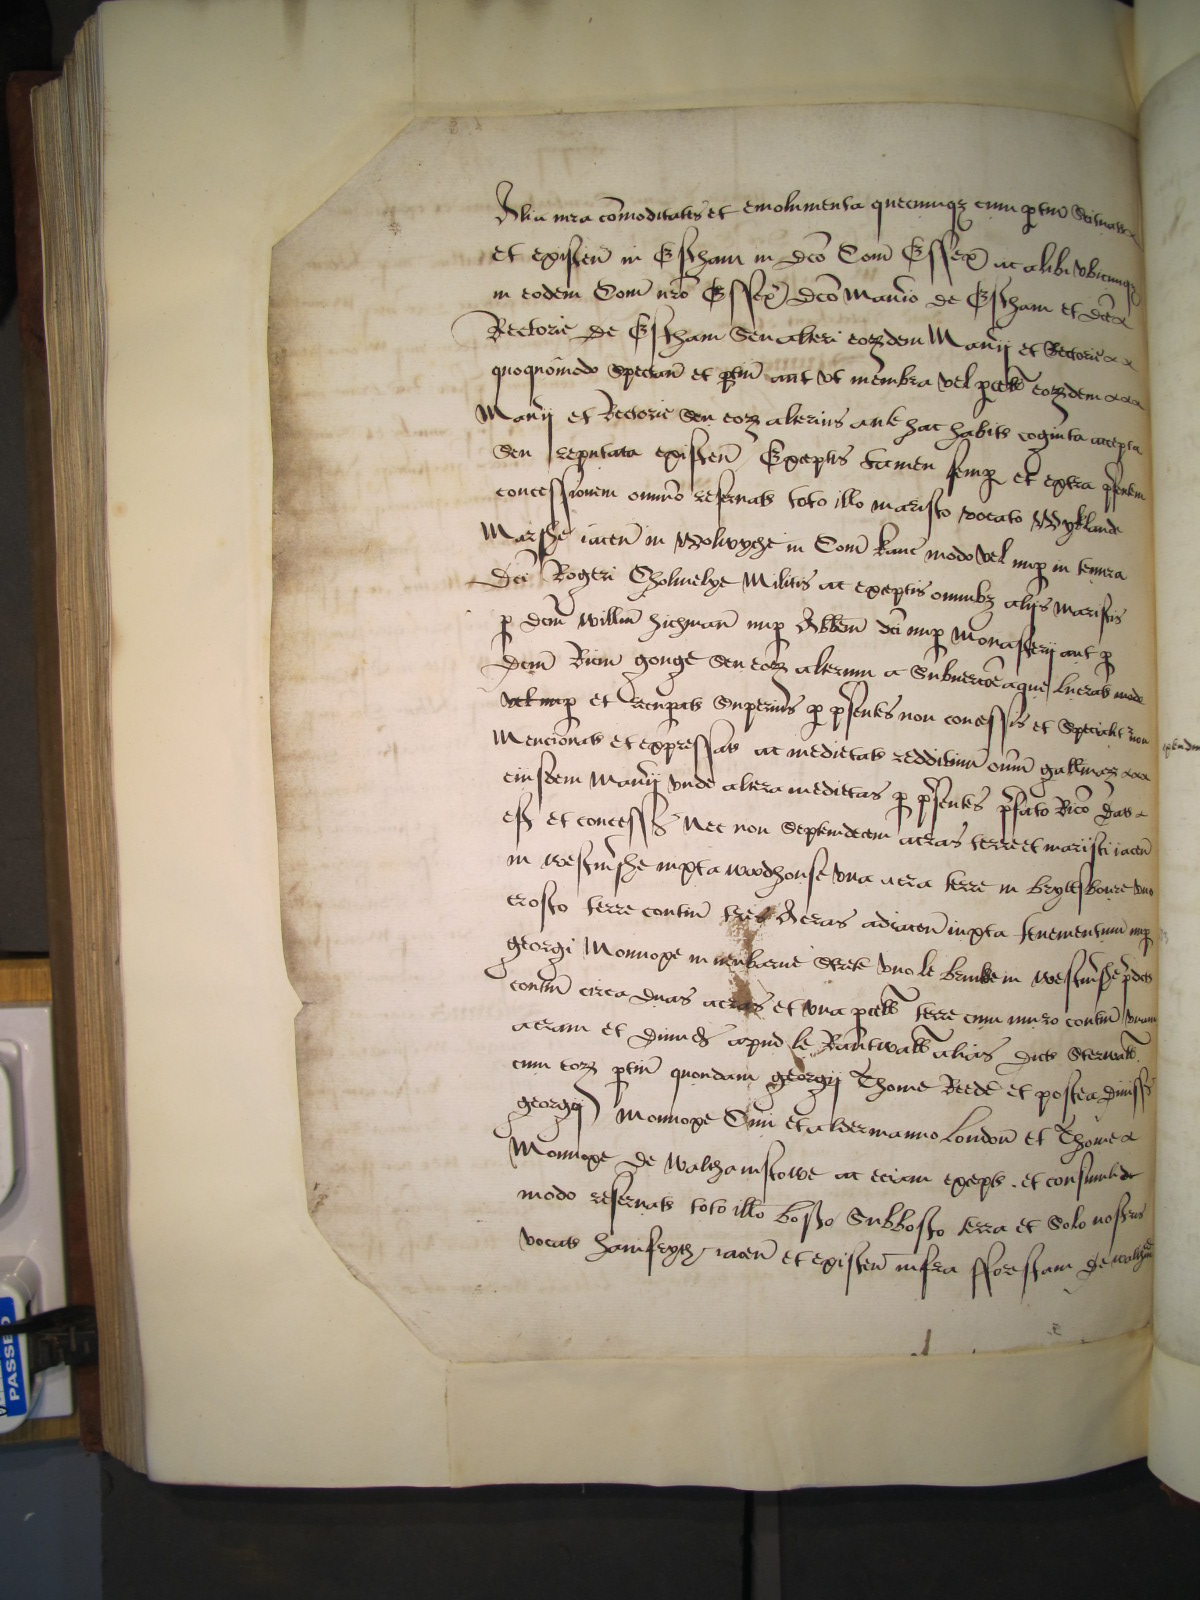 Alia nra cōmoditates et emolumenta quecumqz cum ptin Scituat
et existen in Estham in dco Com Essex ac alibi vbicumqz
in eodem Com nro Essex dco Manio de Estham et dce
Rectorie de Estham Seu alteri eorzdem Manij et Rectorie
quoquomodo spectan et ptin aut vt membra vel pcell eorzdem
Manij et Rectorie Seu eorz alterius ante hac habit cognita accepta
Seu reputata existen Exceptis tamen semp et extra psentem
concessionem omnino reservat toto illo marisco vocato Wyklande
Marshe iacen in Wolwyche in Com Kanc modo vel nup in tenura
Dci Rogeri Cholmelye Militis ac exceptis omnibz alijs mariscis
p dcm willm hichman nup Abbem dci nup Monasterij aut p
dcm Ricm gonge Seu eorz alterum a Submercōe aque lucrat modo
vel nup et recupat Superius p psentes non concessis et Specialit non
Mencionat et expressat ac medietat reddituum oim gallinarz
eiusdem Manij vnde altera medietas p psentes pfato Rico dat
est et concess Nec non Septemdecem acras terre et marisci iacen
in westmshe iuxta woodhouse vna acra terre in bryttsboure vno
crofto terre contin tres Acras adiacen iuxta tenementum nup
georgi Monnoxe in newbarne Strete vno le brinke in westmshe pdct
contin circa duas acras et vna pcell terre cum muro contin vnam
acram et dimid apud le Ramtwall alias dict Sterwall
cum eorz ptin quondam georgij Thome Reede et postea dimiss
georgij Monnoxe Civi et aldermanno London et Thome
Monnoxe de walthamstowe ac eciam except et consimili
modo reservat toto illo bosco Subbosco terra et Solo nostris
vocat hamfryth iacen et existen infra fforestam de waltham
PASSED